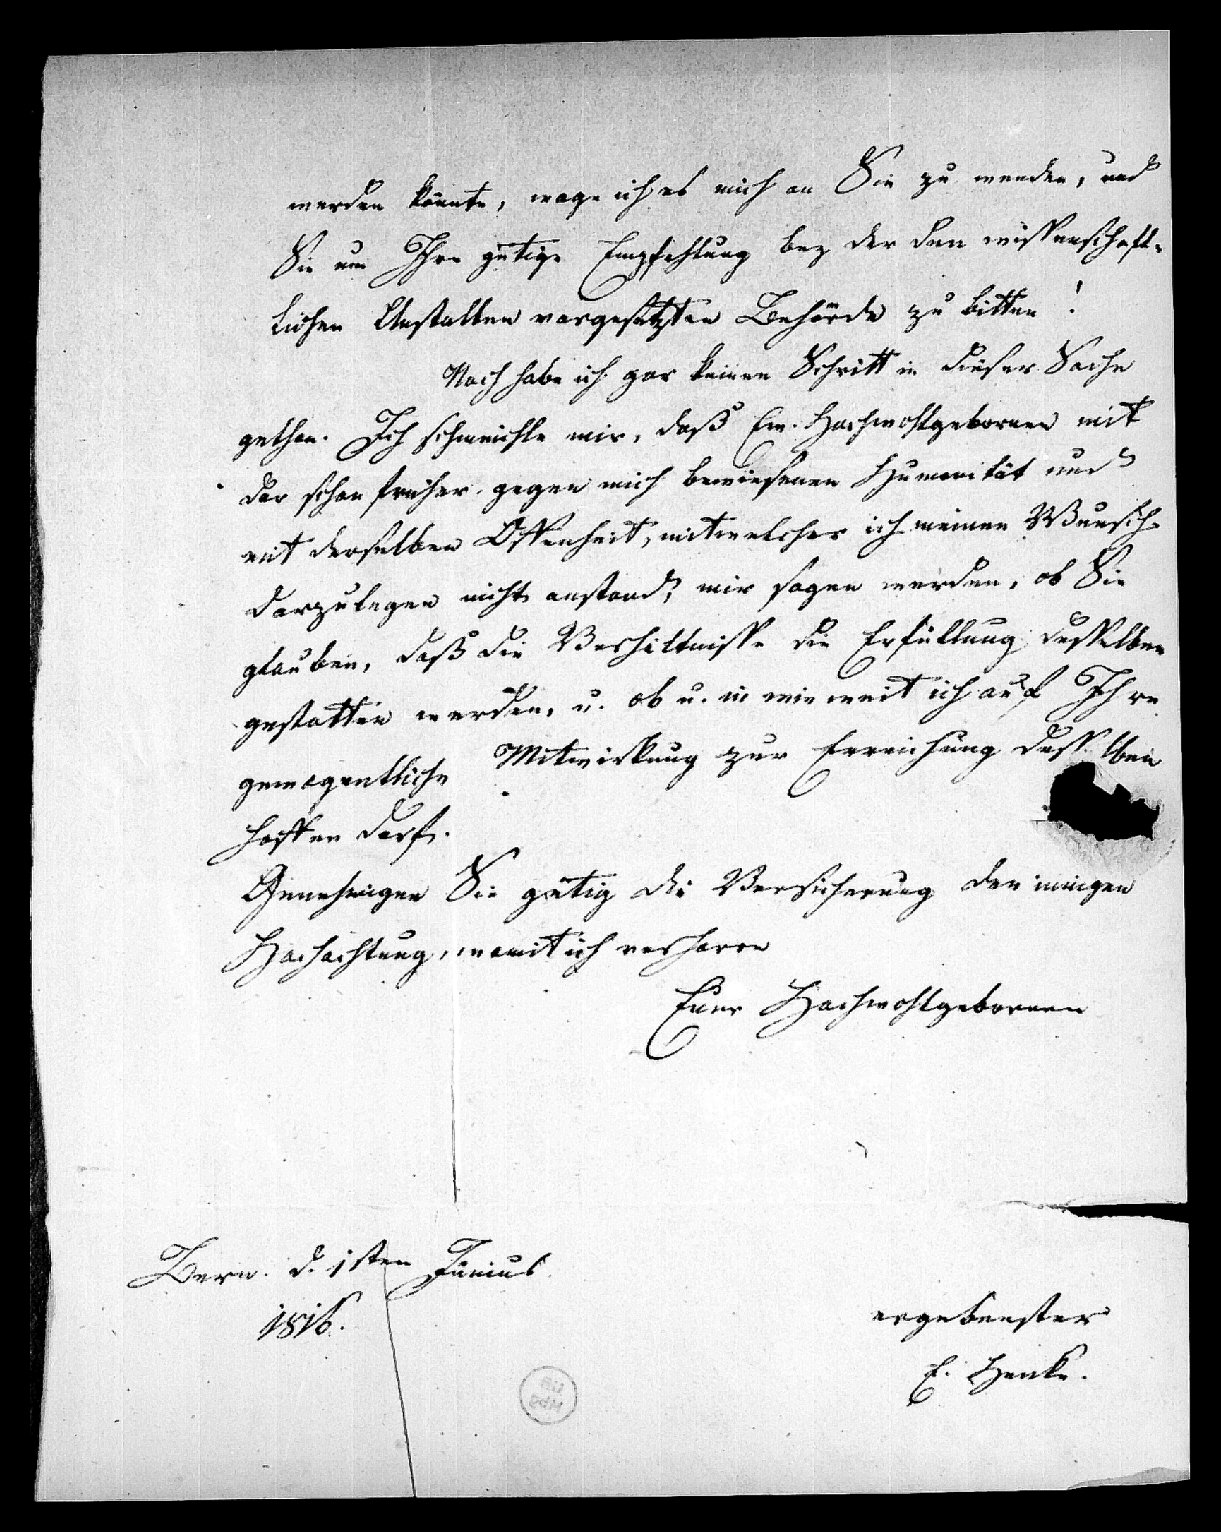 werden könnte, wage ich es mich an Sie zu wenden, und
Sie um Ihre gütige Empfehlung bey der den wissenschaft-
lichen Anstalten vorgesetzten Behörde zu bitten!
Noch habe ich gar keinen Schritt in dieser Sache
gethan. Ich schmeichle mir, daß Ew. Hochwohlgebornen mit
der schon früher gegen mich bewiesenen Humanität und
mit derselben Offenheit, mit welcher ich meinen Wunsch
darzulegen nicht anstand, mir sagen werden, ob Sie
glauben, daß die Verhältnisse die Erfüllung desselben
gestatten werden, u. ob u. in wie weit ich auf Ihre
gewogentliche Mitwirkung zur Erreichung desselben
hoffen darf.
Genehmigen Sie gütig die Versicherung der innigen
Hochachtung, womit ich verharre
Euer Hochwohlgebornen
Bern. d. 1sten Junius
1816.
ergebenster
E. Henke.